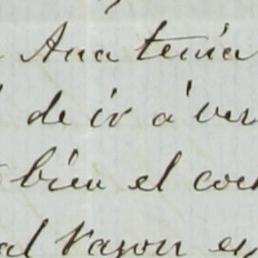 Ana tenia
de ir á ver
bien el coc
al razon es